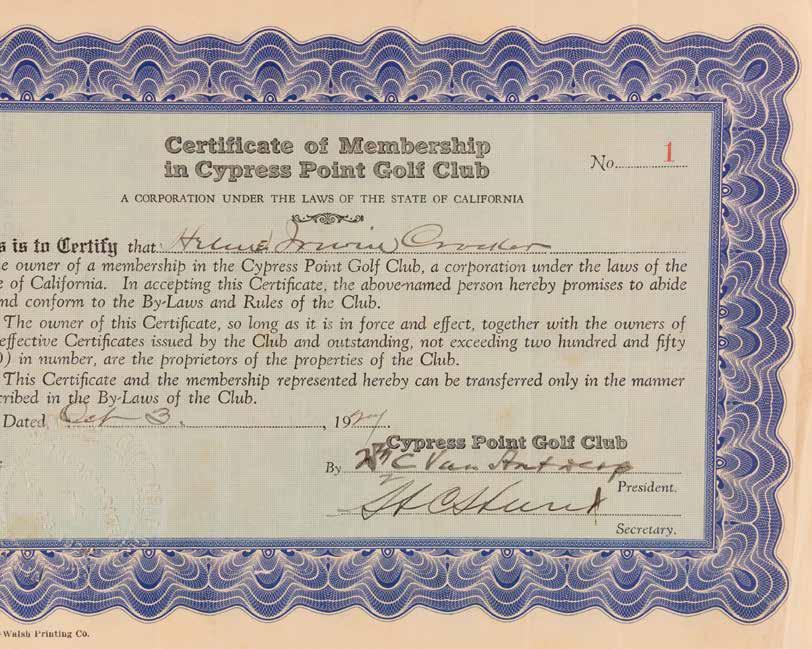 Certificate of Membership
in Cypress Point Golf Club
No. 1
A CORPORATION UNDER THE LAWS OF THE STATE OF CALIFORNIA
s is to Certify that Helene Irwin Crocker
e owner of a membership in the Cypress Point Golf Club, a corporation under the laws of the
e of California. In accepting this Certificate, the above-named person hereby promises to abide
nd conform to the By-Laws and Rules of the Club.
The owner of this Certificate, so long as it is in force and effect, together with the owners of
effective Certificates issued by the Club and outstanding, not exceeding two hundred and fifty
) in number, are the proprietors of the properties of the Club.
This Certificate and the membership represented hereby can be transferred only in the manner
cribed in the By-Laws of the Club.
Dated Oct 3. , 1927.
Cypress Point Golf Club
By Wm C Van Antwerp
President.
Secretary.
Walsh Printing Co.